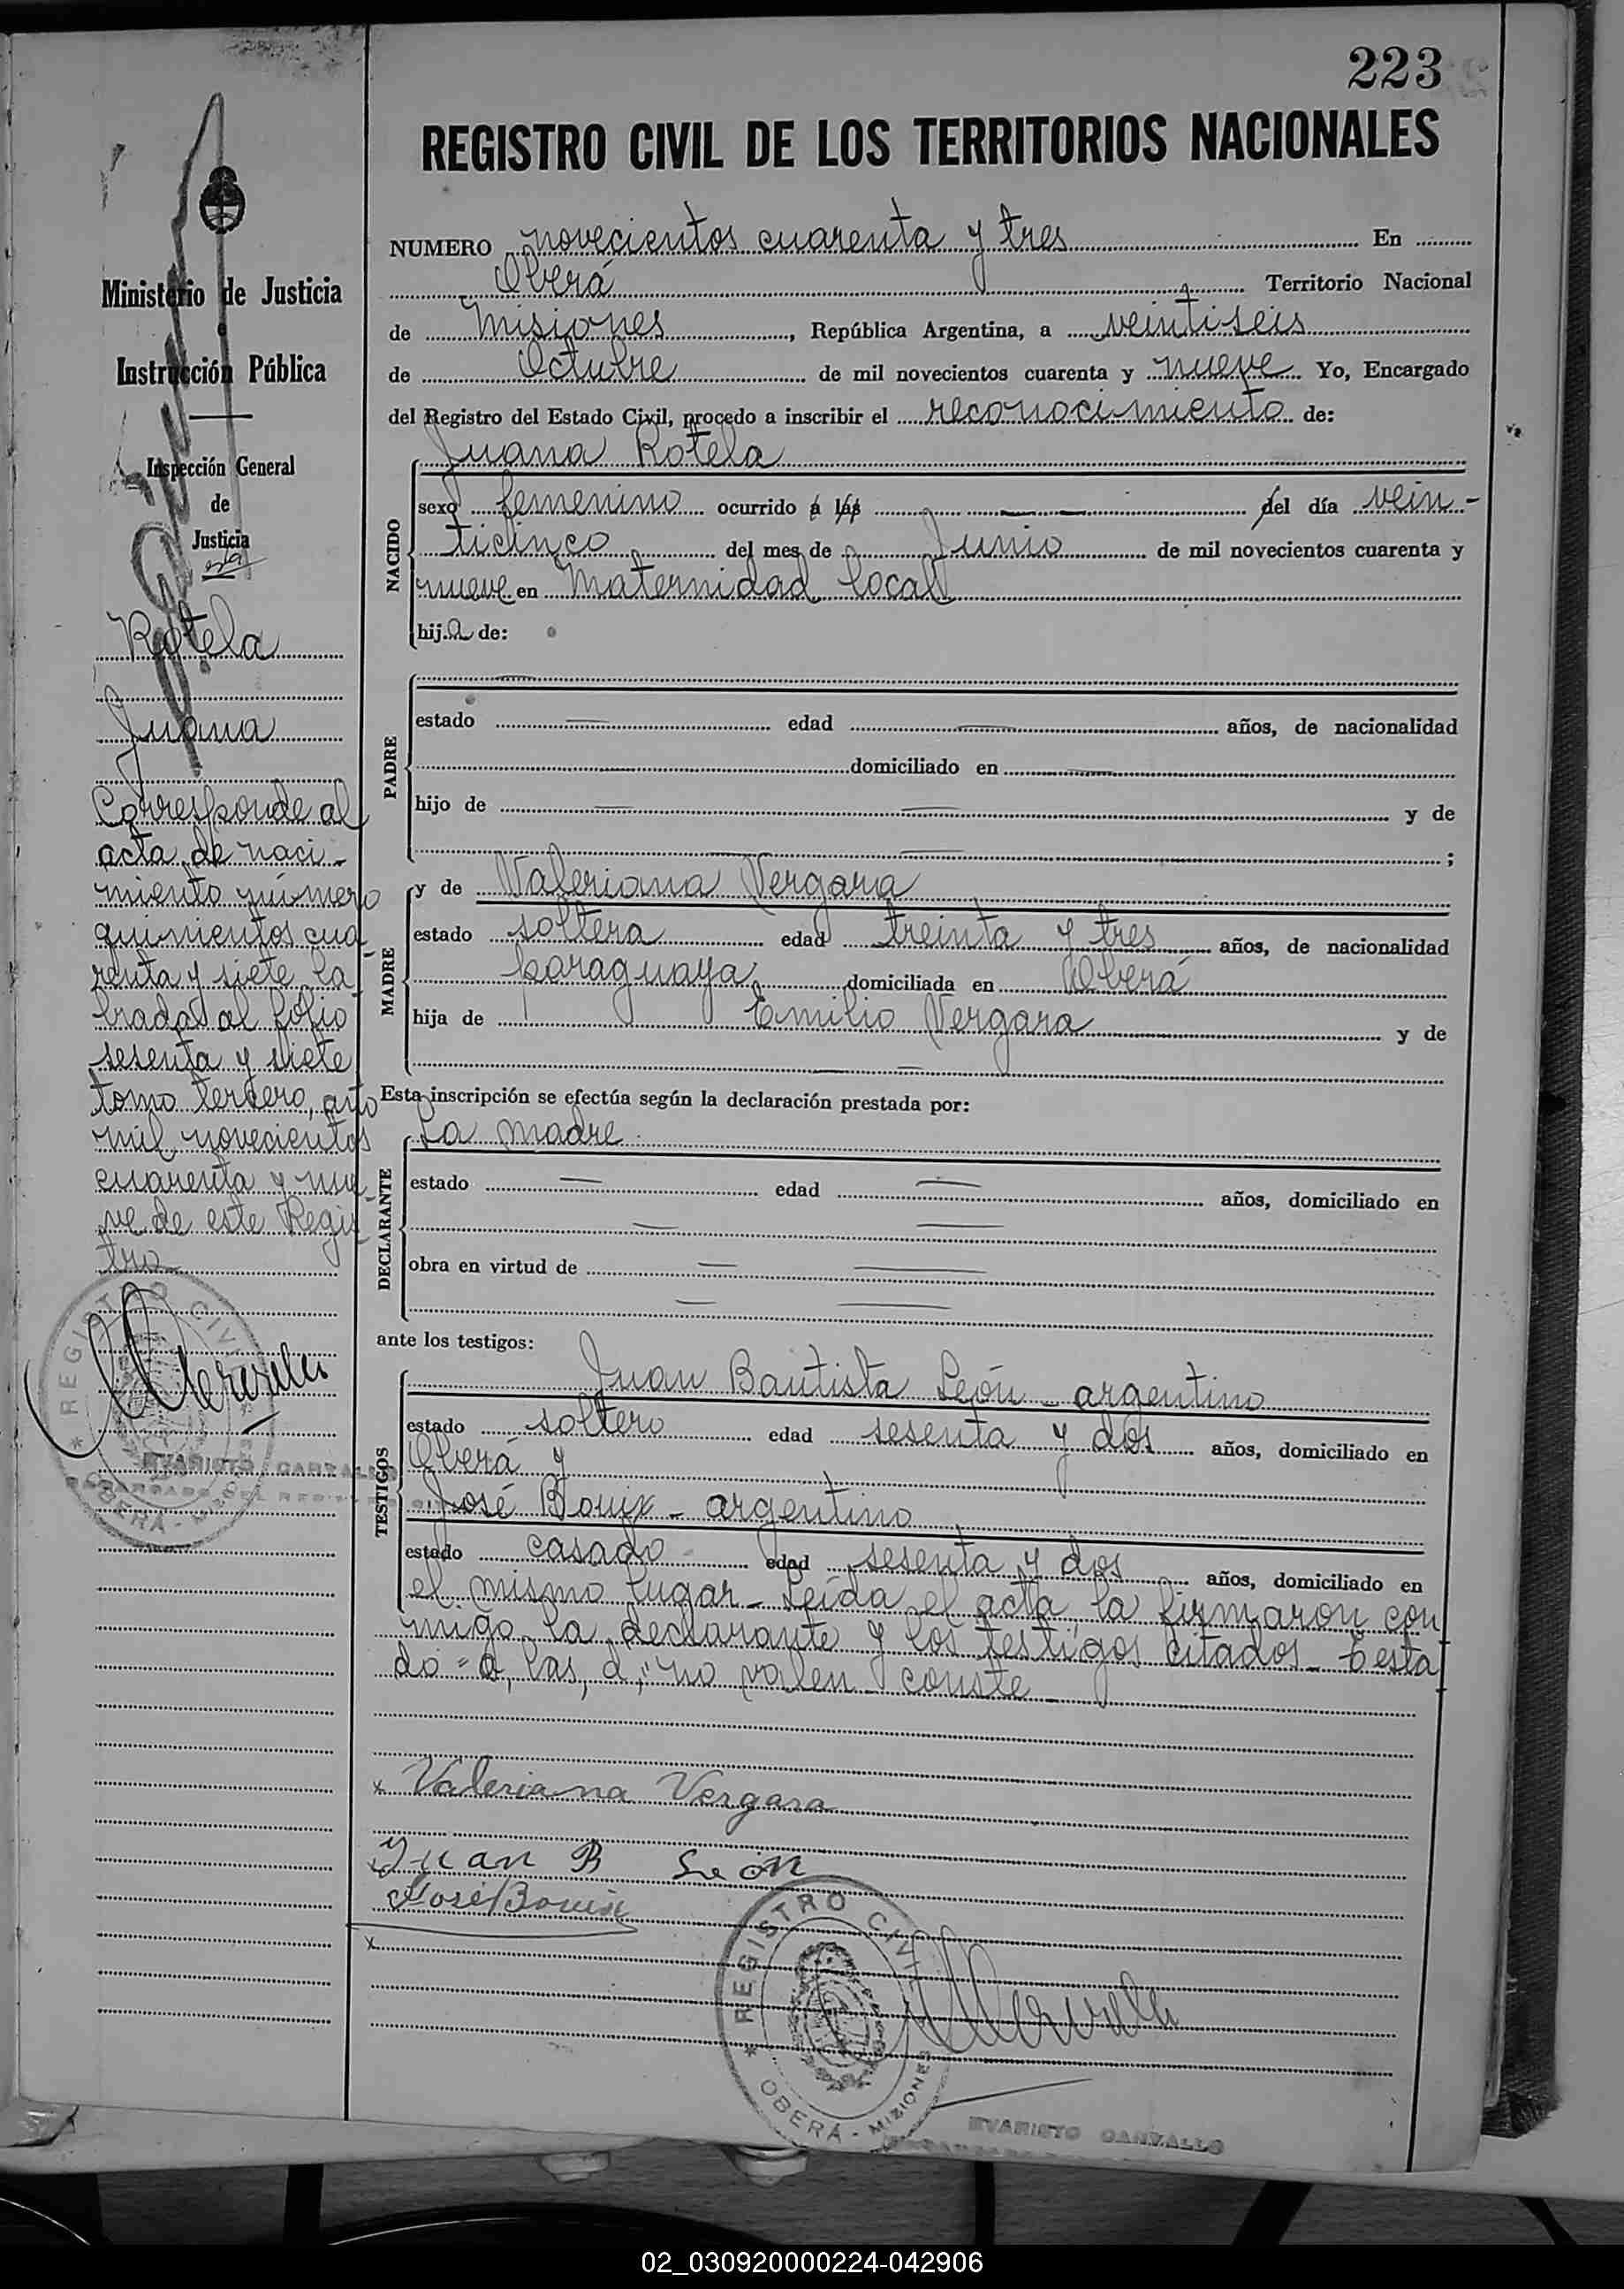 223
REGISTRO CIVIL DE LOS TERRITORIOS NACIONALES
Ministerio de Justicia
e
Instrucción Pública
Inspección General
de
Justicia
Rotela
Juana
Corresponde al
acta de naci-
miento número
quinientos cua-
renta y siete la
brada al folio
sesenta y siete
tomo tercero, año
mil novecientos
cuarenta y nue-
ve de este Regis
tro
REGISTRO CIVIL
OBERÁ -
EVARISTO CARVALLO
ENCARGADO DEL REGISTRO
NUMERO novecientos cuarenta y tres En
Oberá Territorio Nacional
de Misiones, República Argentina, a veintiseis
de Octubre de mil novecientos cuarenta y nueve Yo, Encargado
del Registro del Estado Civil, procedo a inscribir el reconocimiento de:
NACIDO
Juana Rotela
sexo femenino ocurrido á las — — del día vein-
ticinco del mes de Junio de mil novecientos cuarenta y
nueve en Maternidad local
hija de:
PADRE
estado — edad — años, de nacionalidad
— domiciliado en —
hijo de — — y de
— — ;
MADRE
y de Valeriana Vergara
estado soltera edad treinta y tres años, de nacionalidad
paraguaya domiciliada en Oberá
hija de Emilio Vergara y de
— —
Esta inscripción se efectúa según la declaración prestada por:
DECLARANTE
La madre
estado — edad — años, domiciliado en
— —
obra en virtud de — —
— —
ante los testigos:
TESTIGOS
Juan Bautista León - argentino
estado soltero edad sesenta y dos años, domiciliado en
Oberá y
José Bouix - argentino
estado casado edad sesenta y dos años, domiciliado en
el mismo lugar - Leída el acta la firmaron con
migo la declarante y los testigos citados - Testa
do = a, las, d, " no valen - conste -
x Valeriana Vergara
Juan B León
José Bouix
x
REGISTRO CIVIL
OBERÁ - MISIONES
EVARISTO CARVALLO
02_030920000224-042906